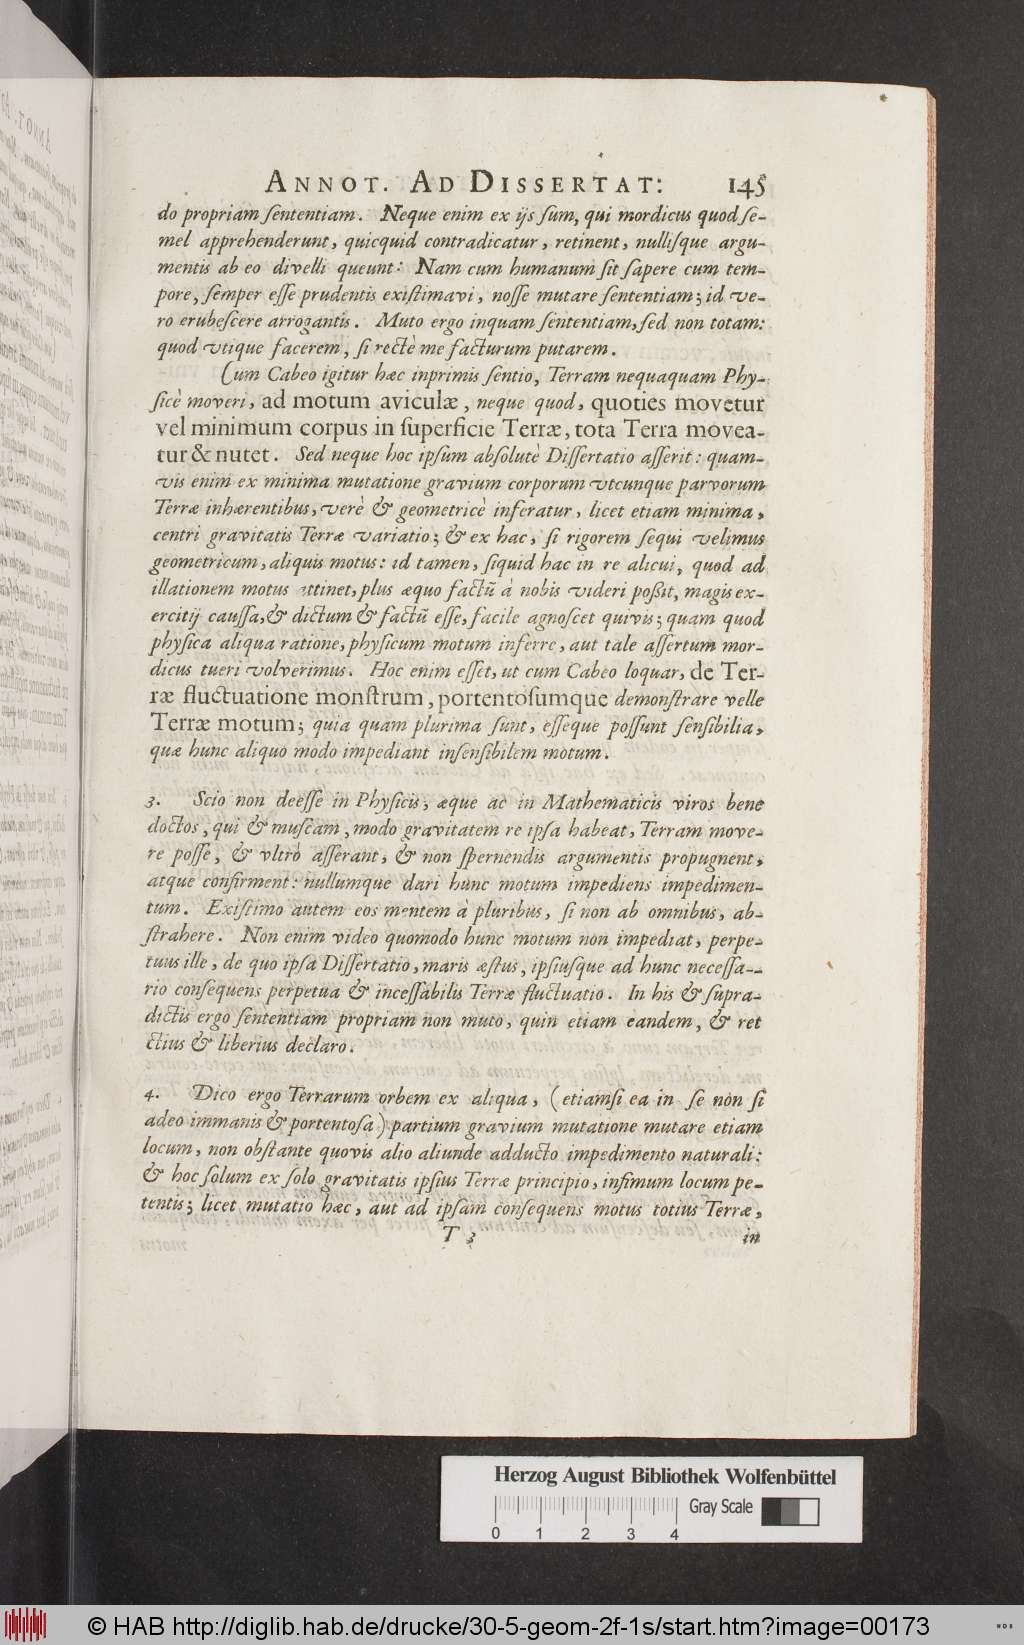 ANNOT. AD DISSERTAT: 145
do propriam ſententiam. Neque enim ex ijs ſum, qui mordicus quod ſe-
mel apprehenderunt, quicquid contradicatur, retinent, nulliſque argu-
mentis ab eo divelli queunt: Nam cum humanum ſit ſapere cum tem-
pore, ſemper eſſe prudentis exiſtimavi, noſſe mutare ſententiam; id ve-
ro erubeſcere arrogantis. Muto ergo inquam ſententiam, ſed non totam:
quod vtique facerem, ſi rectè me facturum putarem.
Cum Cabeo igitur hæc inprimis ſentio, Terram nequaquam Phy-
ſicè moveri, ad motum aviculæ, neque quod, quoties movetur
vel minimum corpus in ſuperficie Terræ, tota Terra movea-
tur & nutet. Sed neque hoc ipſum abſolutè Diſſertatio aſſerit: quam-
vis enim ex minima mutatione gravium corporum vtcunque parvorum
Terræ inhærentibus, verè & geometricè inferatur, licet etiam minima,
centri gravitatis Terræ variatio; & ex hac, ſi rigorem ſequi velimus
geometricum, aliquis motus: id tamen, ſiquid hac in re alicui, quod ad
illationem motus attinet, plus æquo factũ à nobis videri poßit, magis ex-
ercitij cauſſa, & dictum & factũ eſſe, facile agnoſcet quivis; quam quod
phyſica aliqua ratione, phyſicum motum inferre, aut tale aſſertum mor-
dicus tueri volverimus. Hoc enim eſſet, ut cum Cabeo loquar, de Ter-
ræ fluctuatione monſtrum, portentoſumque demonſtrare velle
Terræ motum; quia quam plurima ſunt, eſſeque poſſunt ſenſibilia,
quæ hunc aliquo modo impediant inſenſibilem motum.
3. Scio non deeſſe in Phyſicis, æque ac in Mathematicis viros bene
doctos, qui & muſcam, modo gravitatem re ipſa habeat, Terram move-
re poſſe, & vltrò aſſerant, & non ſpernendis argumentis propugnent,
atque confirment: nullumque dari hunc motum impediens impedimen-
tum. Exiſtimo autem eos mentem à pluribus, ſi non ab omnibus, ab-
ſtrahere. Non enim video quomodo hunc motum non impediat, perpe-
tuus ille, de quo ipſa Diſſertatio, maris æſtus, ipſiuſque ad hunc neceſſa-
rio conſequens perpetua & inceſſabilis Terræ fluctuatio. In his & ſupra-
dictis ergo ſententiam propriam non muto, quin etiam eandem, & ret
ctius & liberius declaro.
4. Dico ergo Terrarum orbem ex aliqua, (etiamſi ea in ſe non ſi
adeo immanis & portentoſa) partium gravium mutatione mutare etiam
locum, non obſtante quovis alio aliunde adducto impedimento naturali:
& hoc ſolum ex ſolo gravitatis ipſius Terræ principio, infimum locum pe-
tentis; licet mutatio hæc, aut ad ipſam conſequens motus totius Terræ,
T 3 in
Herzog August Bibliothek Wolfenbüttel
Gray Scale
0 1 2 3 4
© HAB http://diglib.hab.de/drucke/30-5-geom-2f-1s/start.htm?image=00173